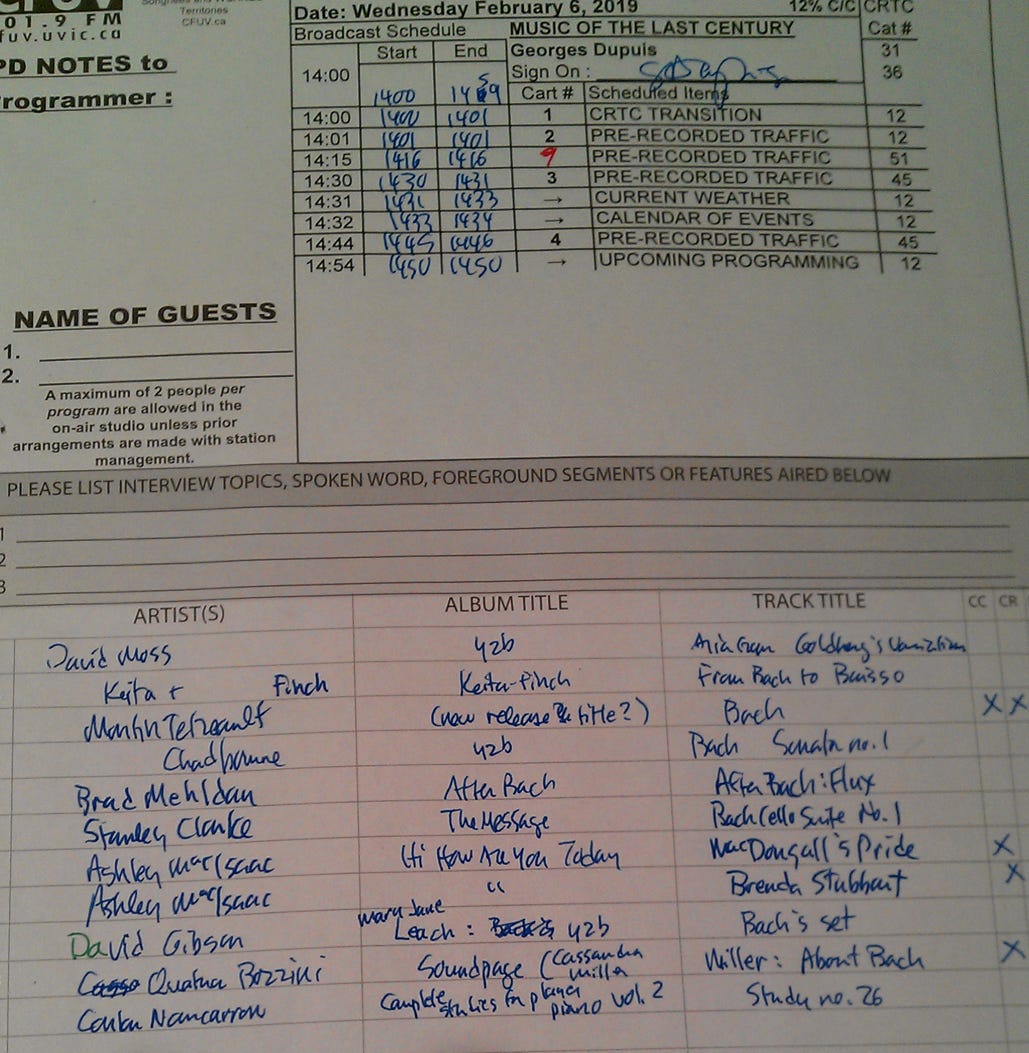 01.9 FM
fuv.uvic.ca
Territories
CFUV.ca
PD NOTES to
rogrammer :
Date: Wednesday February 6, 2019 12% C/C CRTC
Broadcast Schedule MUSIC OF THE LAST CENTURY Cat #
Start End Georges Dupuis 31
14:00 Sign On : 36
1400 1459 Cart # Scheduled Items
14:00 1400 1401 1 CRTC TRANSITION 12
14:01 1401 1401 2 PRE-RECORDED TRAFFIC 12
14:15 1416 1416 9 PRE-RECORDED TRAFFIC 51
14:30 1430 1431 3 PRE-RECORDED TRAFFIC 45
14:31 1431 1433 → CURRENT WEATHER 12
14:32 1433 1434 → CALENDAR OF EVENTS 12
14:44 1445 1446 4 PRE-RECORDED TRAFFIC 45
14:54 1450 1450 → UPCOMING PROGRAMMING 12
NAME OF GUESTS
1.
2.
A maximum of 2 people per
program are allowed in the
on-air studio unless prior
arrangements are made with station
management.
PLEASE LIST INTERVIEW TOPICS, SPOKEN WORD, FOREGROUND SEGMENTS OR FEATURES AIRED BELOW
1
2
3
ARTIST(S) ALBUM TITLE TRACK TITLE CC CR
David Moss y2b Aria from Goldberg's Variations
Keita + Finch Keita-Finch From Bach to Baïsso
Martin Tetreault (new release title?) Bach X X
Chadbourne y2b Bach Sonata no. 1
Brad Mehldau After Bach After Bach: Flux
Stanley Clarke The Message Bach Cello Suite No. 1
Ashley MacIsaac Hi How Are You Today MacDougall's Pride X
Ashley MacIsaac " Brenda Stubbert X
David Gibson Mary Jane Leach : y2b Bach's set
Quatuor Bozzini Soundpage (Cassandra Miller Miller: About Bach X
Conlon Nancarrow Complete studies for player piano vol. 2 Study no. 26